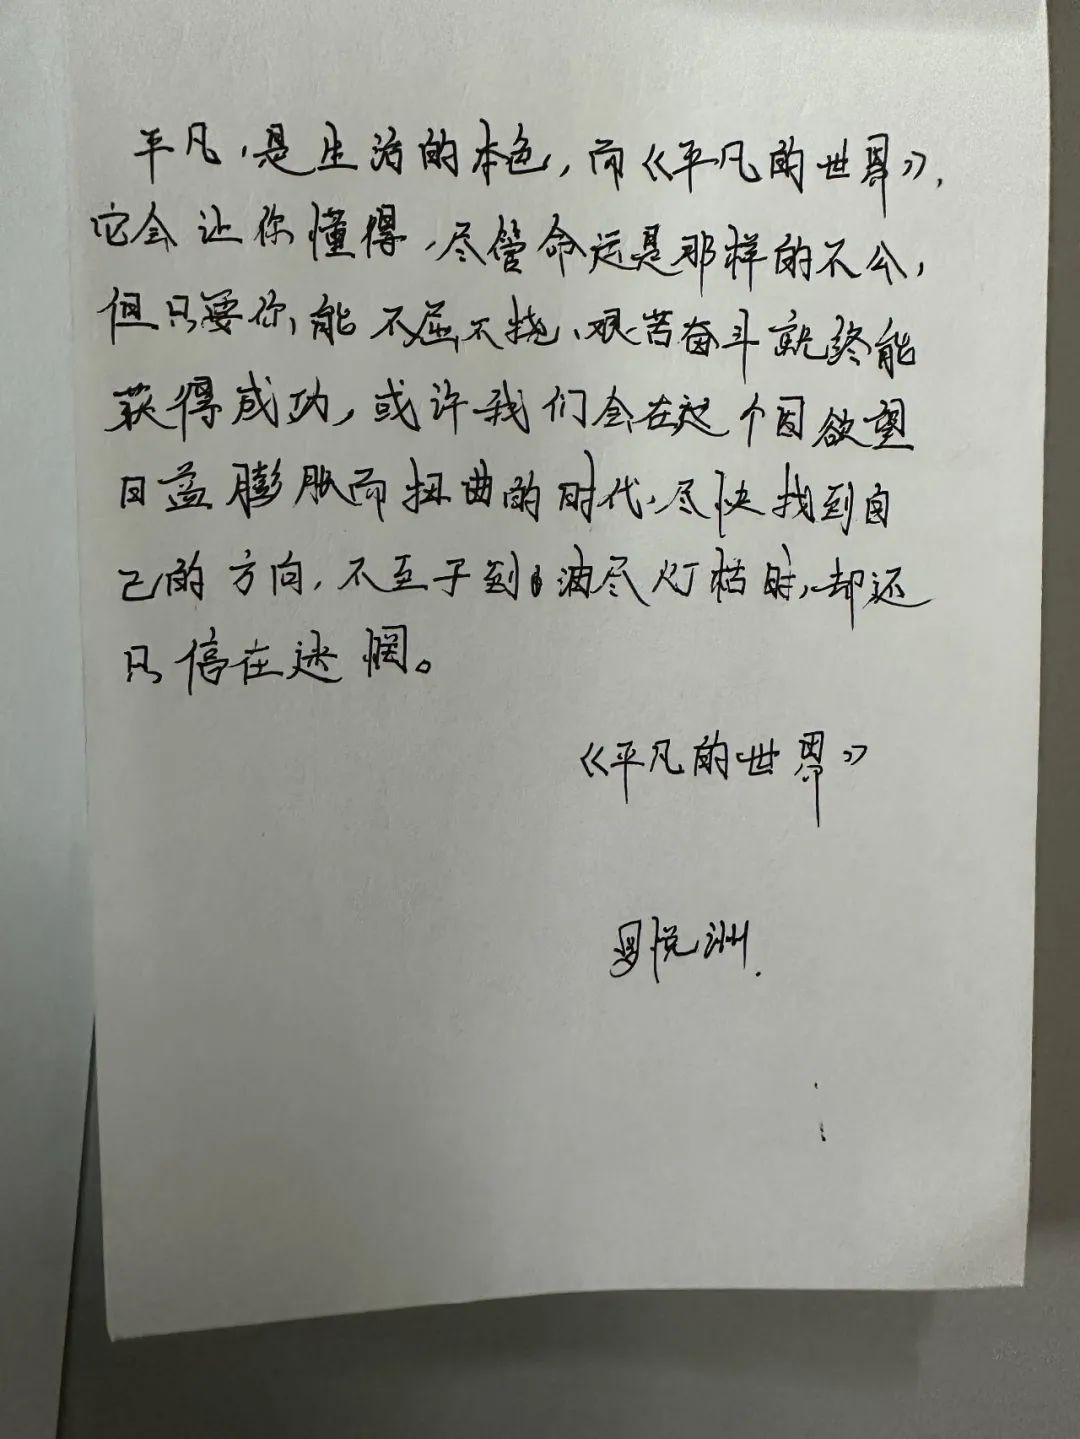 平凡，是生活的本色，而《平凡的世界》，
它会让你懂得，尽管命运是那样的不公，
但只要你，能不屈不挠、艰苦奋斗就终能
获得成功，或许我们会在这个因欲望
日益膨胀而扭曲的时代，尽快找到自
己的方向，不至于到油尽灯枯时，却还
只停在迷惘。
《平凡的世界》
罗悦洲.